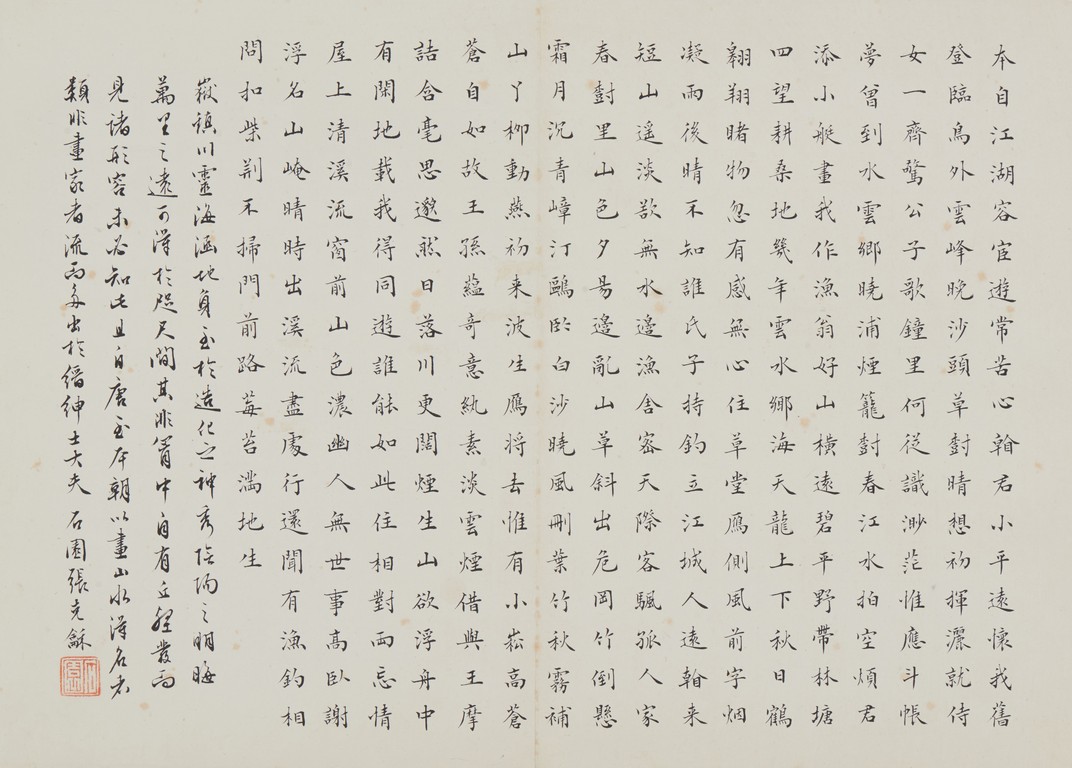 本自江湖客宦遊常苦心翰君小平遠懷我舊
登臨鳥外雲峰晚沙頭草對晴想初揮灑就侍
女一齊驚公子歌鐘里何從識渺茫惟應斗帳
夢曾到水雲鄉曉浦煙籠對春江水拍空煩君
添小艇畫我作漁翁好山橫遠碧平野帶林塘
四望耕桑地幾年雲水鄉海天龍上下秋日鶴
翱翔睹物忽有感無心住草堂鴈側風前字烟
凝雨後晴不知誰氏子持釣立江城人遠翰来
短山遙淡欲無水邊漁舍密天際客颿孤人家
春對里山色夕昜邉亂山草斜出危岡竹倒懸
霜月沉青嶂汀鷗臥白沙曉風刪葉竹秋霧補
山丫柳動燕初来波生鴈将去惟有小崧高蒼
蒼自如故王孫蘊奇意紈素淡雲煙借與王摩
詰含毫思邈然日落川更闊煙生山欲浮舟中
有閑地載我得同遊誰能如此住相對兩忘情
屋上清溪流窗前山色濃幽人無世事高臥謝
浮名山崦晴時出溪流盡處行還聞有漁釣相
問扣柴荆不掃門前路莓苔滿地生
嶽鎮川靈海涵地負至於造化之神秀陰陽之明晦
萬里之遠可得於咫尺間其非胷中自有丘壑發而
見諸形容未必知此且自唐至本朝以畫山水得名者
類非畫家者流而多出於縉紳士大夫 石園張克龢